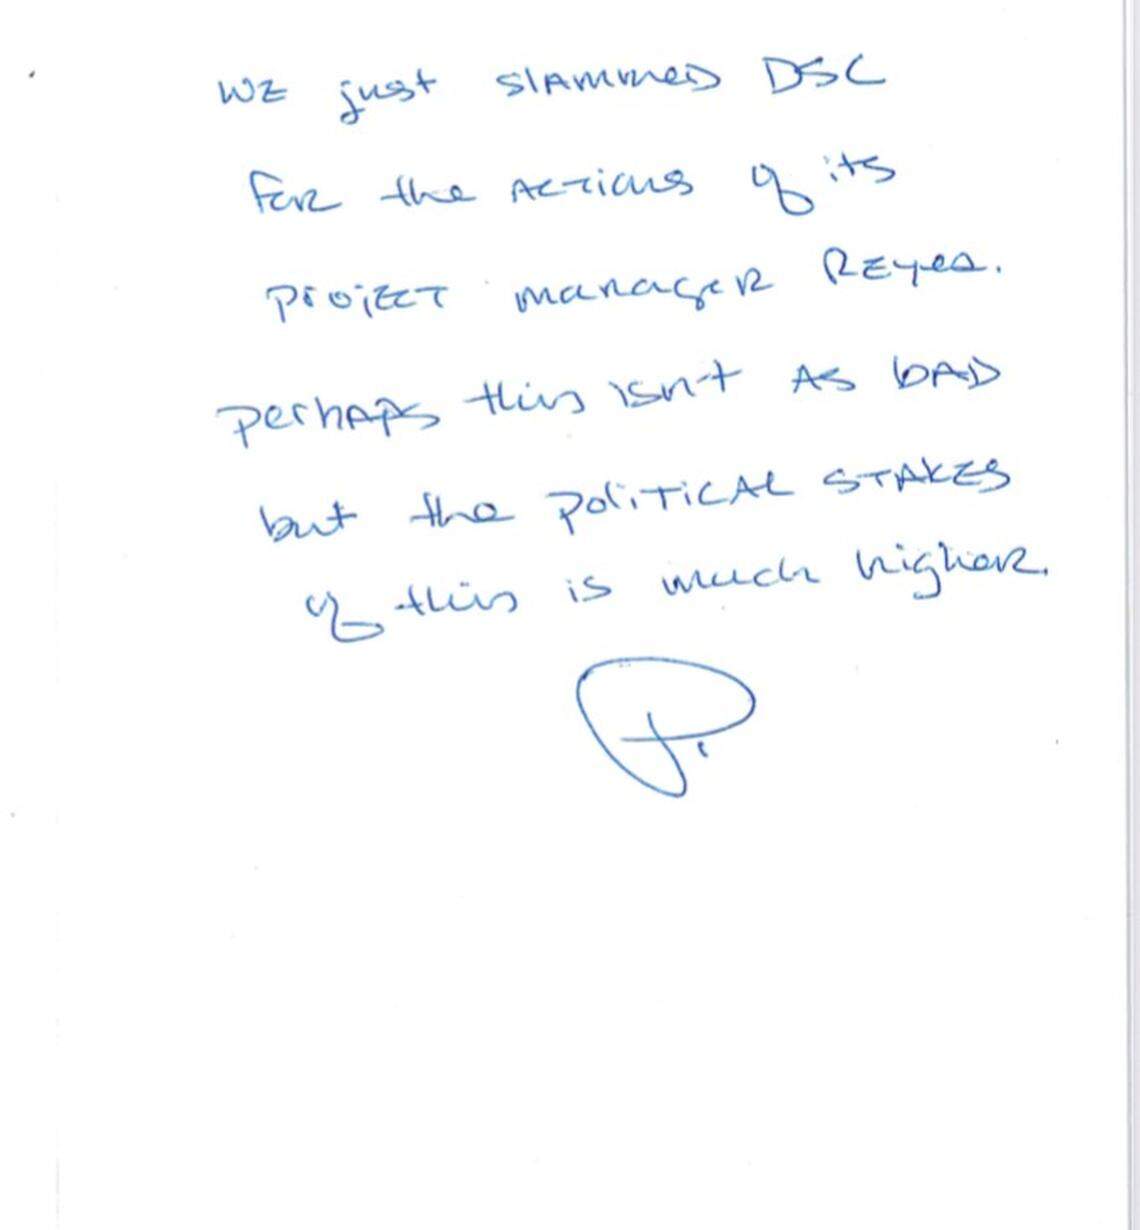 WE just slammed DSC
For the Actions of its
Project manager Reyes.
perhaps this isn't as bad
but the political stakes
of this is much higher.
P.